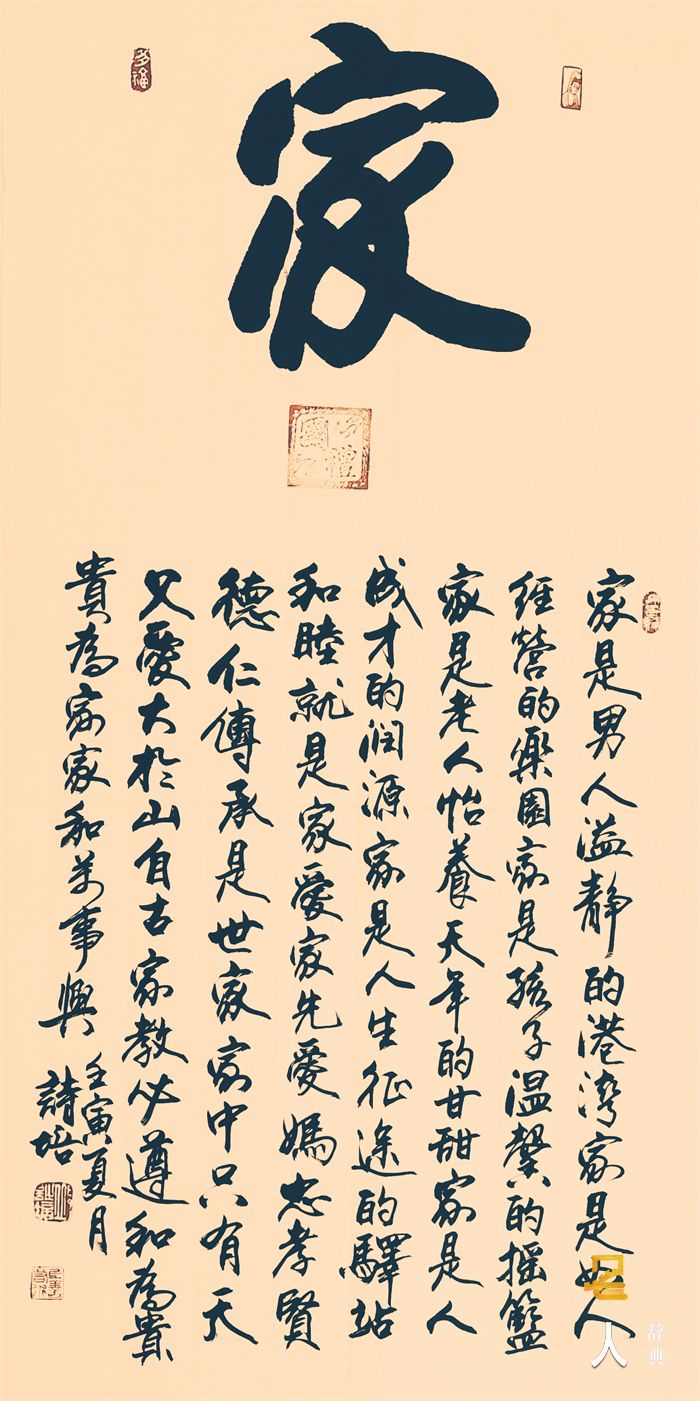 家
多福
家是男人溢靜的港灣家是女人
经營的樂園家是孩子温馨的摇籃
家是老人怡養天年的甘甜家是人
成才的润源家是人生征途的驛站
和睦就是家愛家先愛媽忠孝賢
德仁傳承是世家家中只有天
父愛大於山自古家教必遵和為貴
貴為家家和万事興
壬寅夏月
詩培
名人
辞典